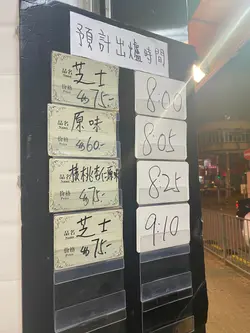 預計出爐時間
品名 芝士
价格 75.-
8:00
品名 原味
价格 60.-
8:05
品名 核桃
价格 75.-
8:25
品名 芝士
价格 75.-
9:10